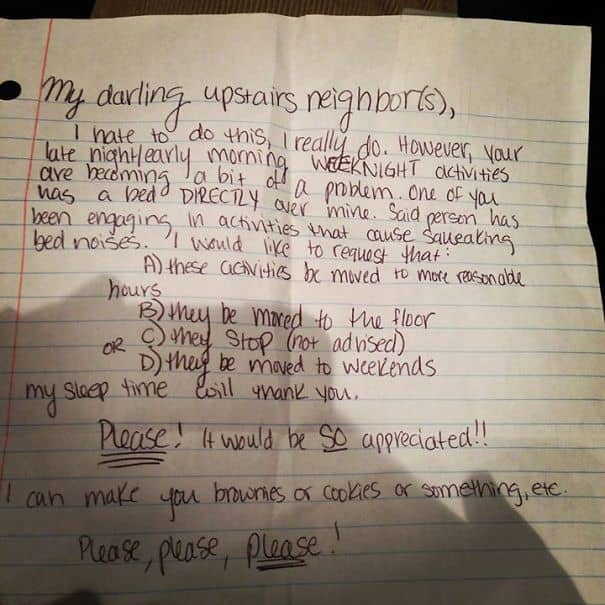 My darling upstairs neighbor(s),
I hate to do this, I really do. However, your
late night/early morning WEEKNIGHT activities
are becoming a bit of a problem. One of you
has a bed DIRECTLY over mine. Said person has
been engaging in activities that cause squeaking
bed noises. I would like to request that:
A) these activities be moved to more reasonable
hours
B) they be moved to the floor
OR C) they stop (not advised)
D) they be moved to weekends
my sleep time will thank you.
Please! It would be SO appreciated!!
I can make you brownies or cookies or something, etc.
Please, please, please!